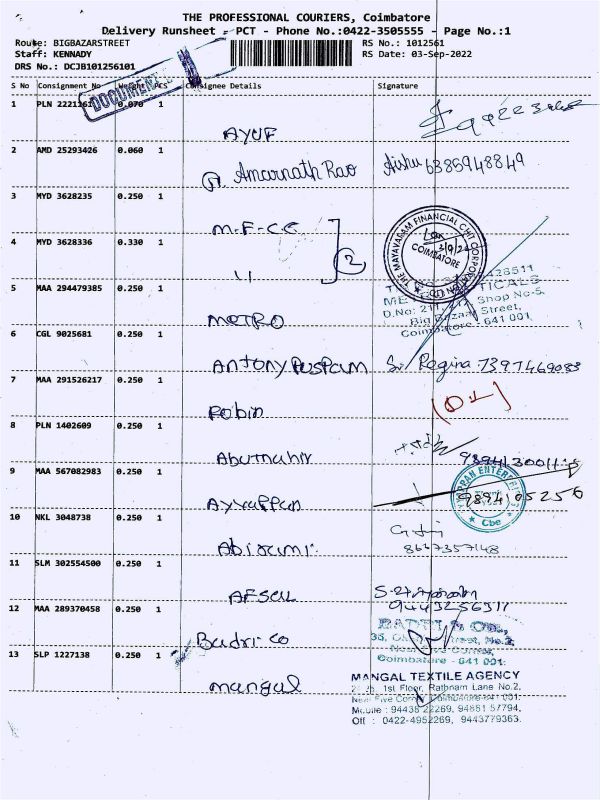 THE PROFESSIONAL COURIERS, Coimbatore
Delivery Runsheet - PCT - Phone No.:0422-3505555 - Page No.:1
Route: BIGBAZARSTREET RS No.: 1012561
Staff: KENNADY RS Date: 03-Sep-2022
DRS No.: DCJB101256101
S No Consignment No Weight PCS Consignee Details Signature
DOCUMENT
1 PLN 0.070 1
AYUF
2 AMD 25293426 0.060 1
G. Amarnath Rao Aishu 6385948849
3 MYD 3628235 0.250 1
M.F.CC
4 MYD 3628336 0.330 1
" 2
THE MAYAVARAM FINANCIAL CHIT CORPORATION
COIMBATORE
5 MAA 294479385 0.250 1
METRO
D.No: 211, Shop No-5,
Big Bazaar Street,
Coimbatore - 641 001.
6 CGL 9025681 0.250 1
Antony Puspam Regina 7397469083
7 MAA 291526217 0.250 1
Robin
8 PLN 1402609 0.250 1
Abuthahir
9 MAA 567082983 0.250 1
Ayyappan 9894105256
ENTER
Cbe
10 NKL 3048738 0.250 1
Abirami 8667357148
11 SLM 302554500 0.250 1
AFSAL
9443256311
12 MAA 289370458 0.250 1
Badri.co
BADRI & CO.,
Coimbatore - 641 001.
13 SLP 1227138 0.250 1
mangal
MANGAL TEXTILE AGENCY
1st Floor, Rathnam Lane No.2,
Coimbatore-641 001.
Mobile : 94438 22269, 94881 57794,
Off : 0422-4952269, 9443779363.